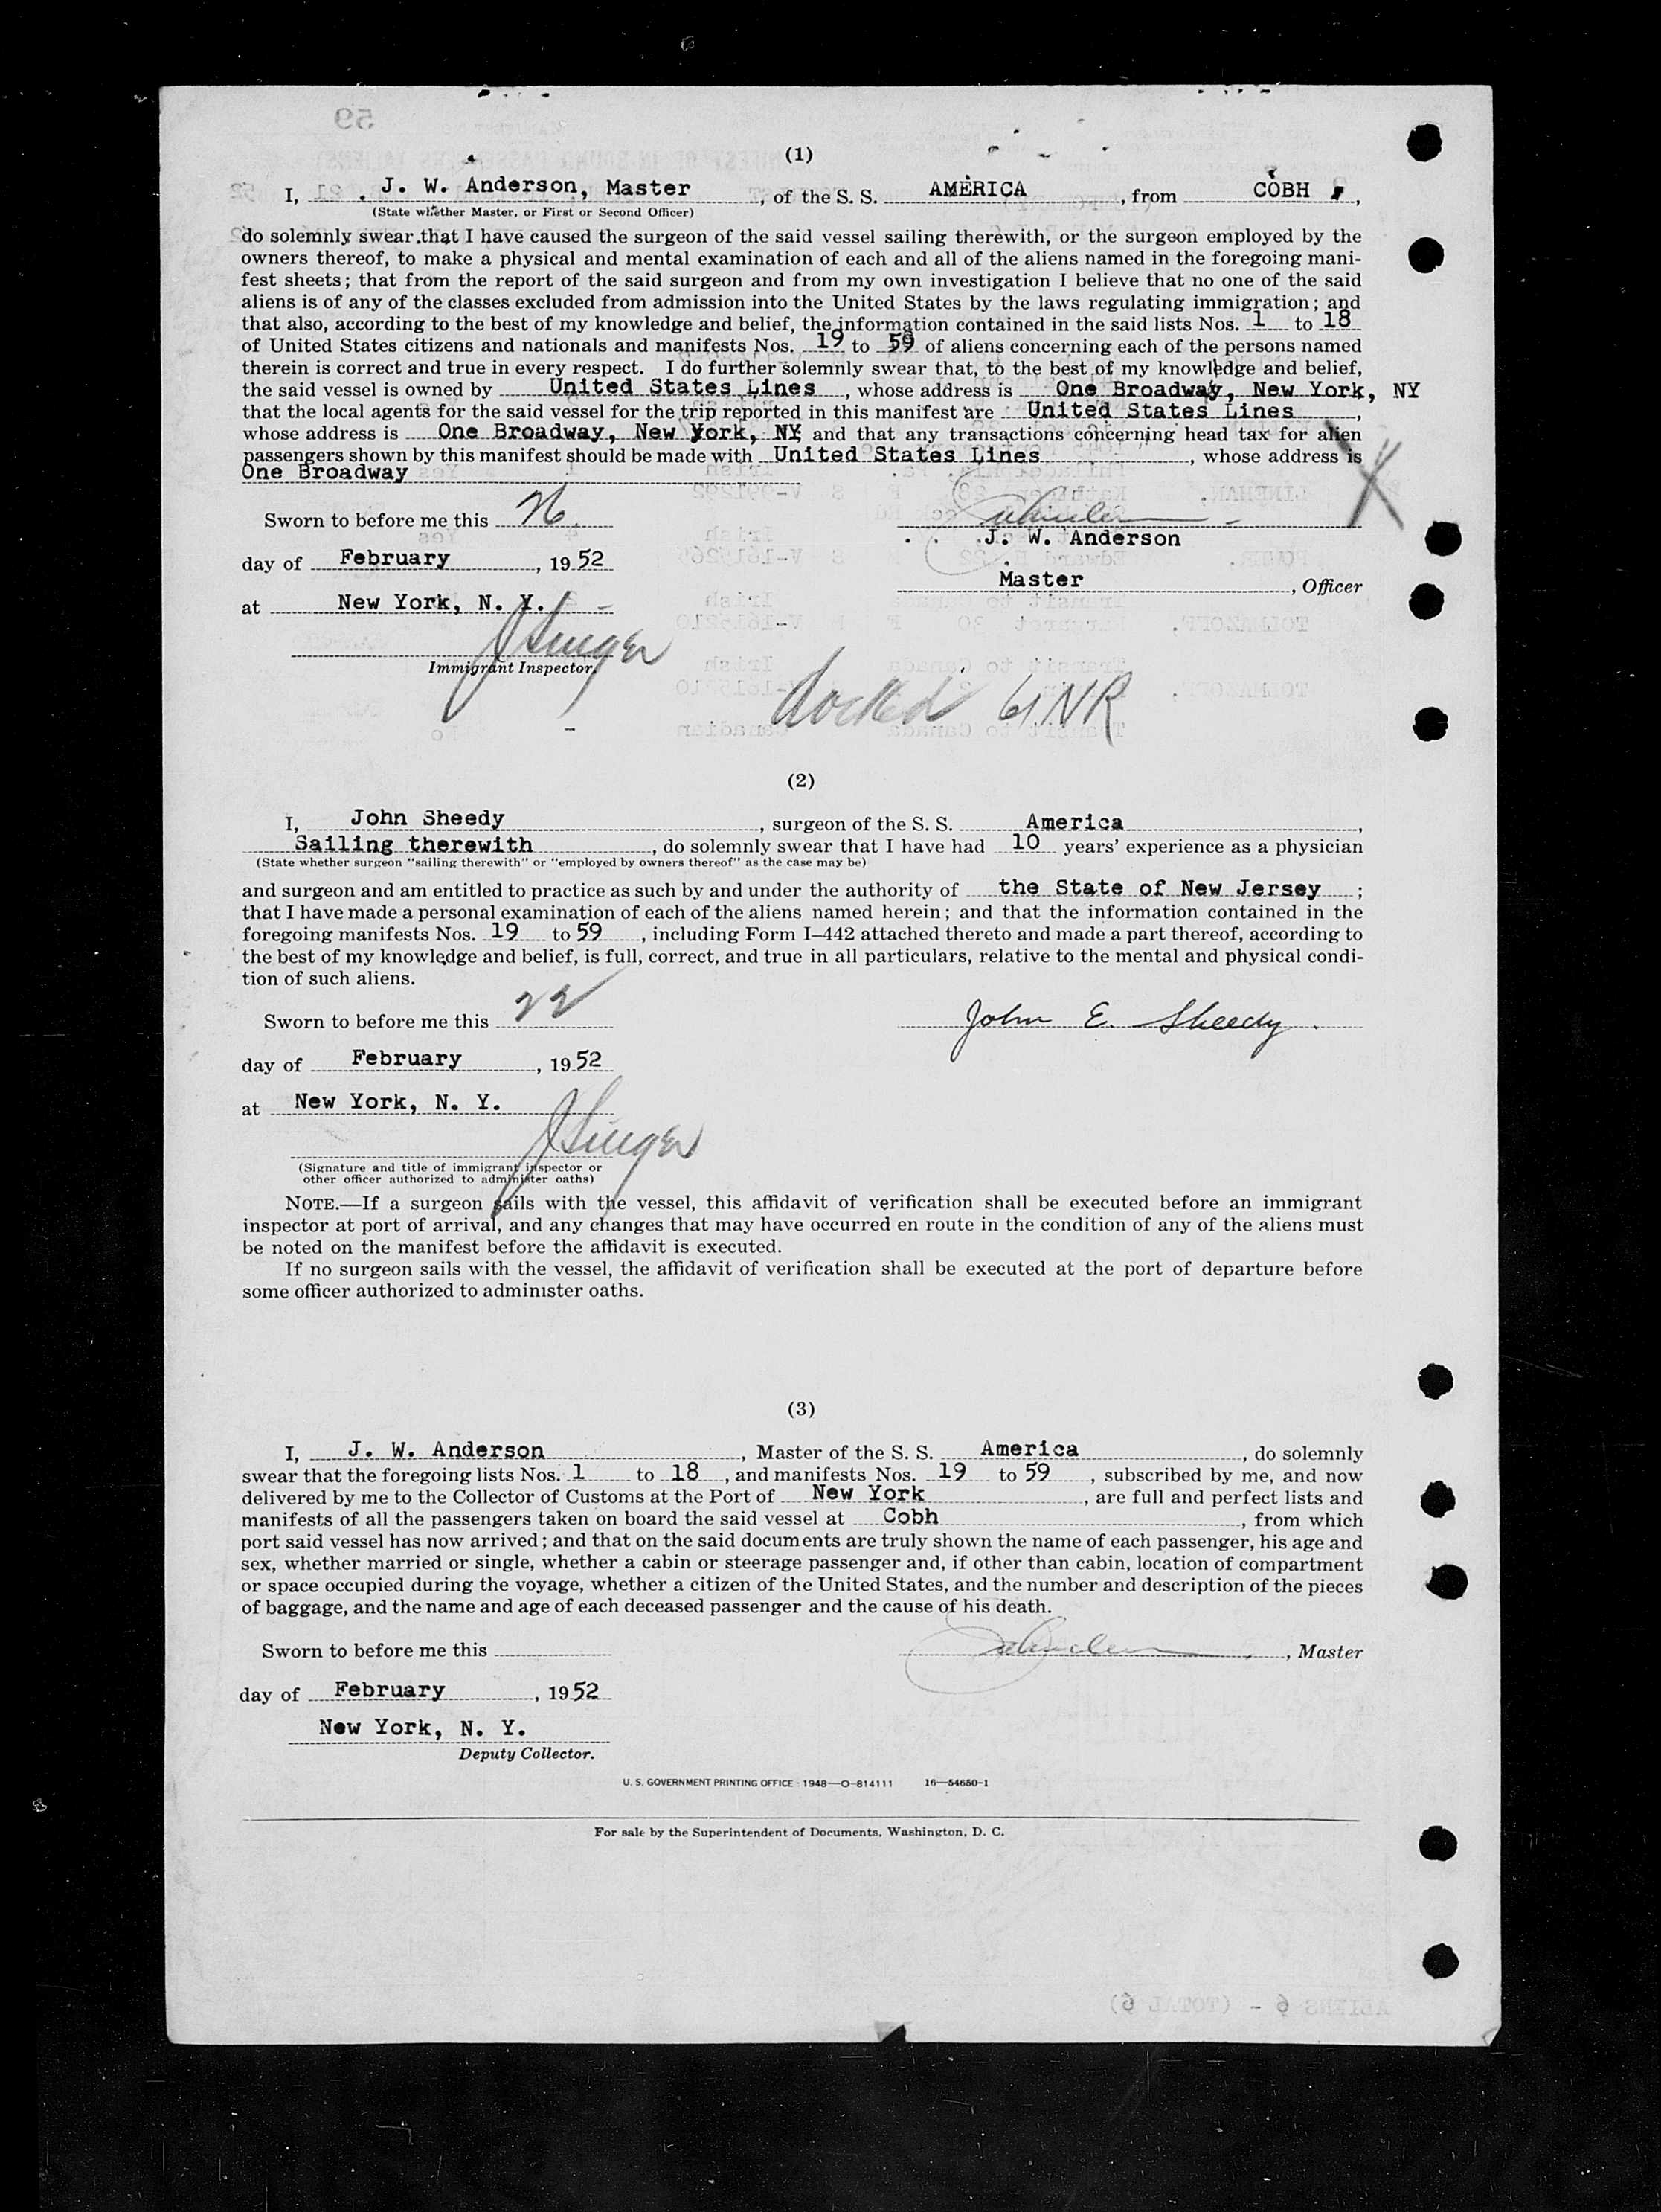 (1)
I, J. W. Anderson, Master, of the S. S. AMERICA, from COBH,
(State whether Master, or First or Second Officer)
do solemnly swear that I have caused the surgeon of the said vessel sailing therewith, or the surgeon employed by the
owners thereof, to make a physical and mental examination of each and all of the aliens named in the foregoing mani-
fest sheets; that from the report of the said surgeon and from my own investigation I believe that no one of the said
aliens is of any of the classes excluded from admission into the United States by the laws regulating immigration; and
that also, according to the best of my knowledge and belief, the information contained in the said lists Nos. 1 to 18
of United States citizens and nationals and manifests Nos. 19 to 59 of aliens concerning each of the persons named
therein is correct and true in every respect. I do further solemnly swear that, to the best of my knowledge and belief,
the said vessel is owned by United States Lines, whose address is One Broadway, New York, NY
that the local agents for the said vessel for the trip reported in this manifest are United States Lines,
whose address is One Broadway, New York, NY and that any transactions concerning head tax for alien
passengers shown by this manifest should be made with United States Lines, whose address is
One Broadway
Sworn to before me this
J. W. Anderson
day of February, 1952
Master, Officer
at New York, N. Y.
J Singer
Immigrant Inspector.
docked 61 NR
(2)
I, John Sheedy, surgeon of the S. S. America,
Sailing therewith, do solemnly swear that I have had 10 years' experience as a physician
(State whether surgeon "sailing therewith" or "employed by owners thereof" as the case may be)
and surgeon and am entitled to practice as such by and under the authority of the State of New Jersey;
that I have made a personal examination of each of the aliens named herein; and that the information contained in the
foregoing manifests Nos. 19 to 59, including Form I–442 attached thereto and made a part thereof, according to
the best of my knowledge and belief, is full, correct, and true in all particulars, relative to the mental and physical condi-
tion of such aliens.
Sworn to before me this 22
John E. Sheedy.
day of February, 1952
at New York, N. Y.
J Singer
(Signature and title of immigrant inspector or
other officer authorized to administer oaths)
NOTE.—If a surgeon sails with the vessel, this affidavit of verification shall be executed before an immigrant
inspector at port of arrival, and any changes that may have occurred en route in the condition of any of the aliens must
be noted on the manifest before the affidavit is executed.
If no surgeon sails with the vessel, the affidavit of verification shall be executed at the port of departure before
some officer authorized to administer oaths.
(3)
I, J. W. Anderson, Master of the S. S. America, do solemnly
swear that the foregoing lists Nos. 1 to 18, and manifests Nos. 19 to 59, subscribed by me, and now
delivered by me to the Collector of Customs at the Port of New York, are full and perfect lists and
manifests of all the passengers taken on board the said vessel at Cobh, from which
port said vessel has now arrived; and that on the said documents are truly shown the name of each passenger, his age and
sex, whether married or single, whether a cabin or steerage passenger and, if other than cabin, location of compartment
or space occupied during the voyage, whether a citizen of the United States, and the number and description of the pieces
of baggage, and the name and age of each deceased passenger and the cause of his death.
Sworn to before me this
, Master
day of February, 1952
New York, N. Y.
Deputy Collector.
U. S. GOVERNMENT PRINTING OFFICE : 1948—O-814111 16—54650-1
For sale by the Superintendent of Documents, Washington, D. C.